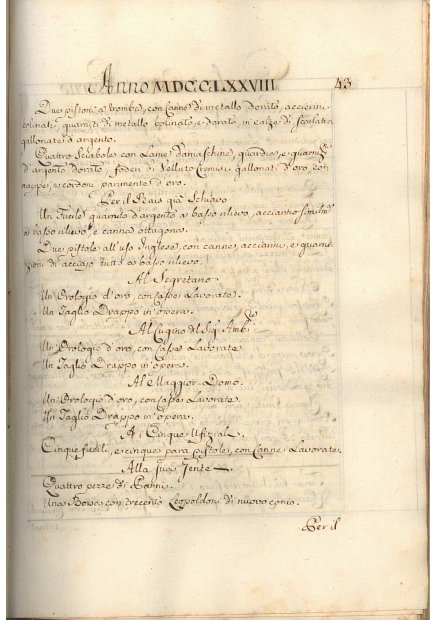 Anno MDCCLXXVIII 43
Due pistoni a tromba, con Canne di metallo dorato, acciarini
bolinati, guarniti di metallo bolinato, e dorato, in calze di scarlatto
gallonate d'argento.
Quattro Sciabole con Lame damaschine, guardie, e guarniz.
d'argento dorato, foderi di Velluto Cremisi gallonati d'oro, con
nappe, e cordoni parimente d'oro.
Per il Rais già Schiavo
Un Fucile guarnito d'argento a basso rilievo, acciarino
a basso rilievo, e canna ottagona.
Due pistole all'uso Inglese, con canne, acciarini, e guarni-
zioni di acciajo tutto a basso rilievo.
Al Segretario
Un Orologio d'oro, con casse Lavorate.
Un Taglio Drappo in opera.
Al Cugino del Sig.r Amb.re
Un Orologio d'oro, con Casse Lavorate
Un Taglio Drappo in opera.
Al Maggior-Domo.
Un Orologio d'oro, con casse Lavorate.
Un Taglio Drappo in opera.
A i Cinque Ufizial.
Cinque fucili, e cinque para pistole, con Canne Lavorate.
Alla sua Jente
Quattro pezze di Panni.
Una Borsa con trecento Leopoldoni di nuovo conio.
Per il